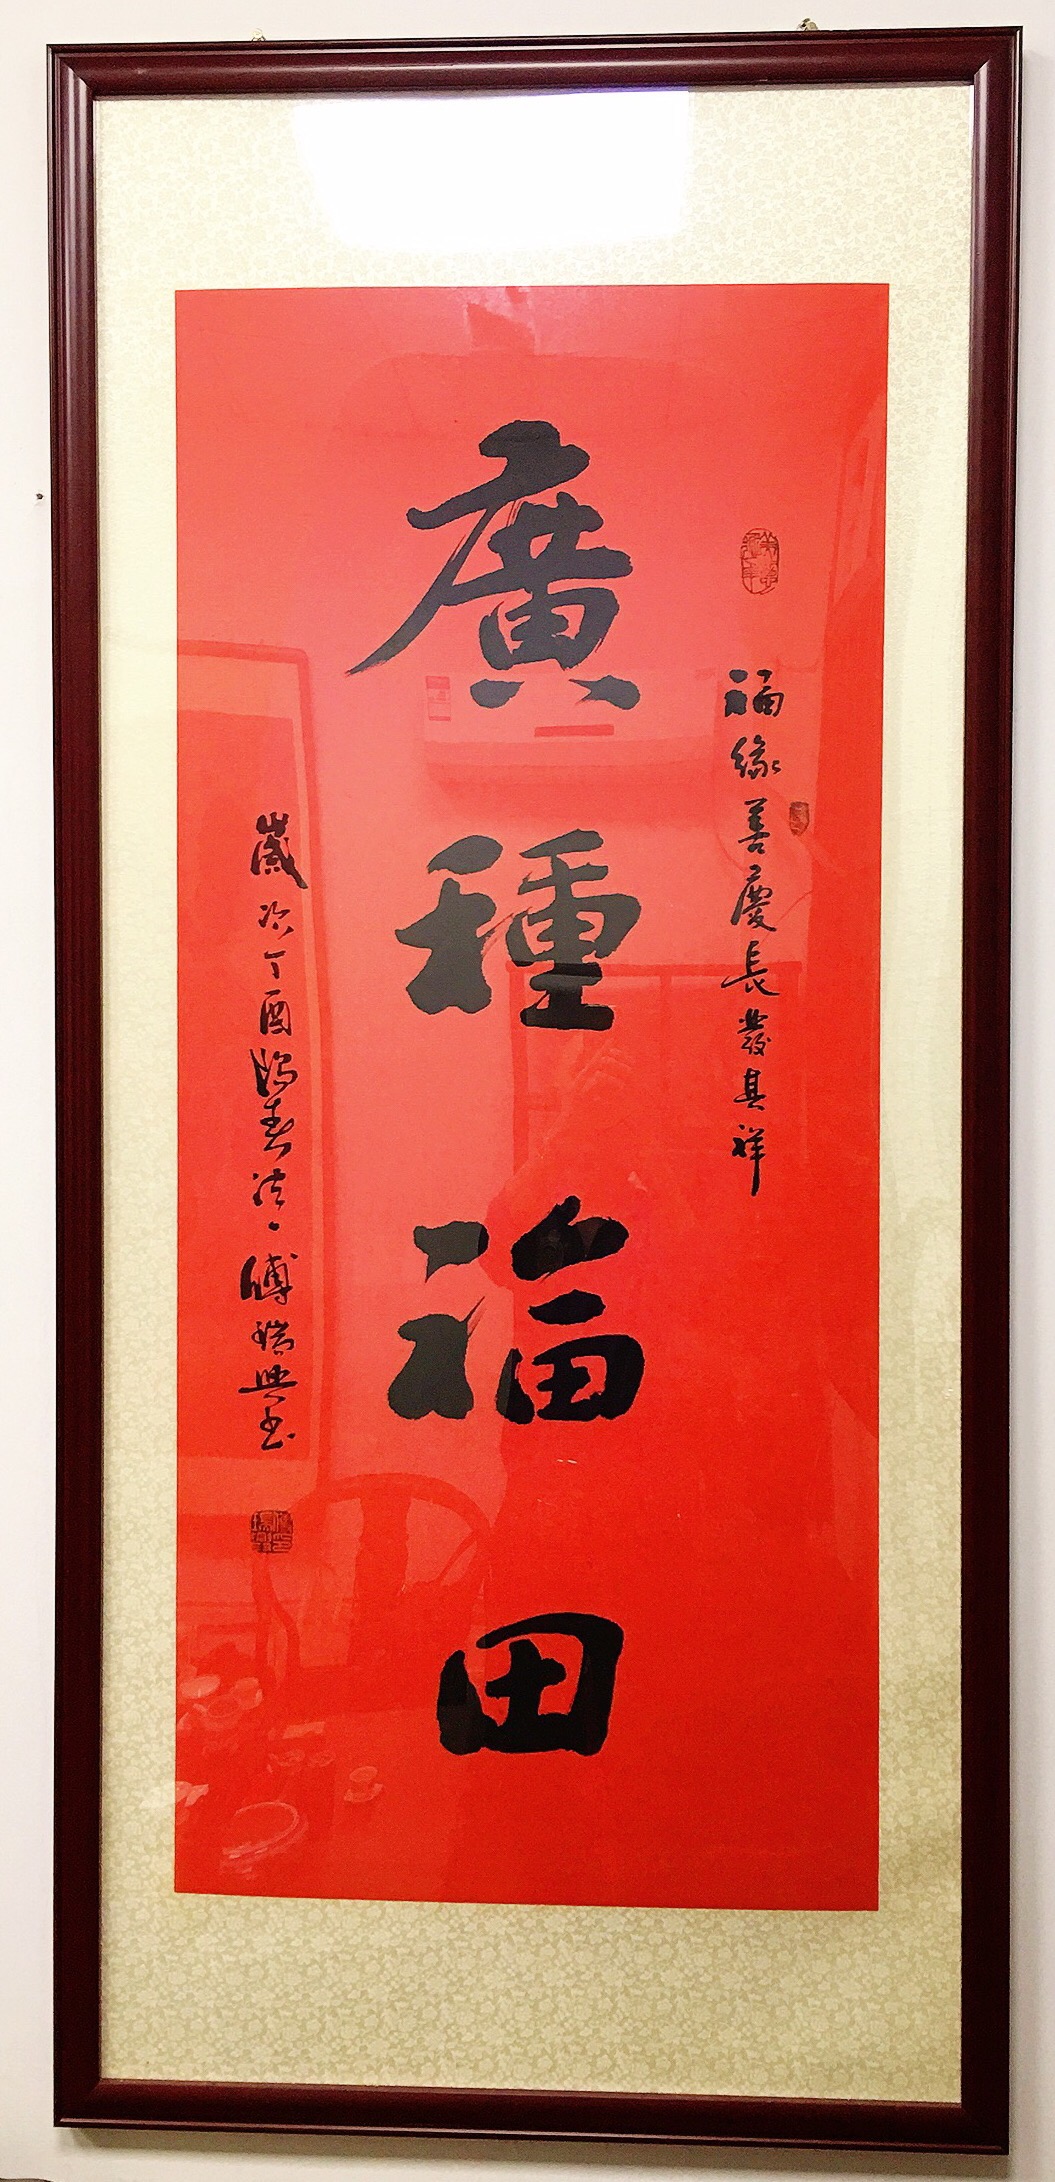 福緣善慶長發其祥
廣種福田
歲次丁酉陽春傅瑞興書